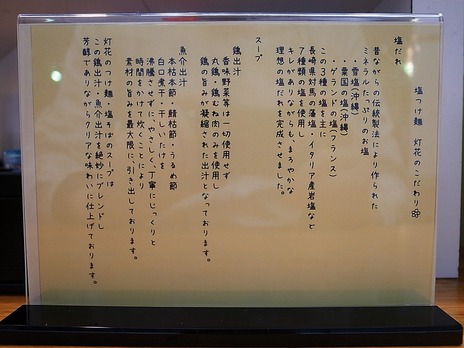 塩つけ麺 灯花のこだわり
塩だれ
昔ながらの伝統製法により作られた
ミネラルたっぷりのお塩
・雪塩(沖縄)
・粟国の塩(沖縄)
・ゲランドの塩(フランス)
この3種の塩を主に
長崎県対馬の藻塩・イタリア産岩塩など
7種類の塩を使用し
キレがありながらも、まろやかな
理想の塩だれを完成させました。
スープ
鶏出汁
香味野菜等は一切使用せず
丸鶏・鶏むね肉のみを使用
鶏の旨みが凝縮された出汁となっております。
魚介出汁
本枯本節・鯖枯節・うるめ節
白口煮干・干しいたけを
沸騰させずに、やさしく、丁寧にじっくりと
時間をかけて炊くことにより
素材の旨みを最大限に引き出しております。
灯花のつけ麺・塩そばのスープは
この鶏出汁・魚介出汁を絶妙にブレンドし
芳醇でありながらクリアな味わいに仕上げております。